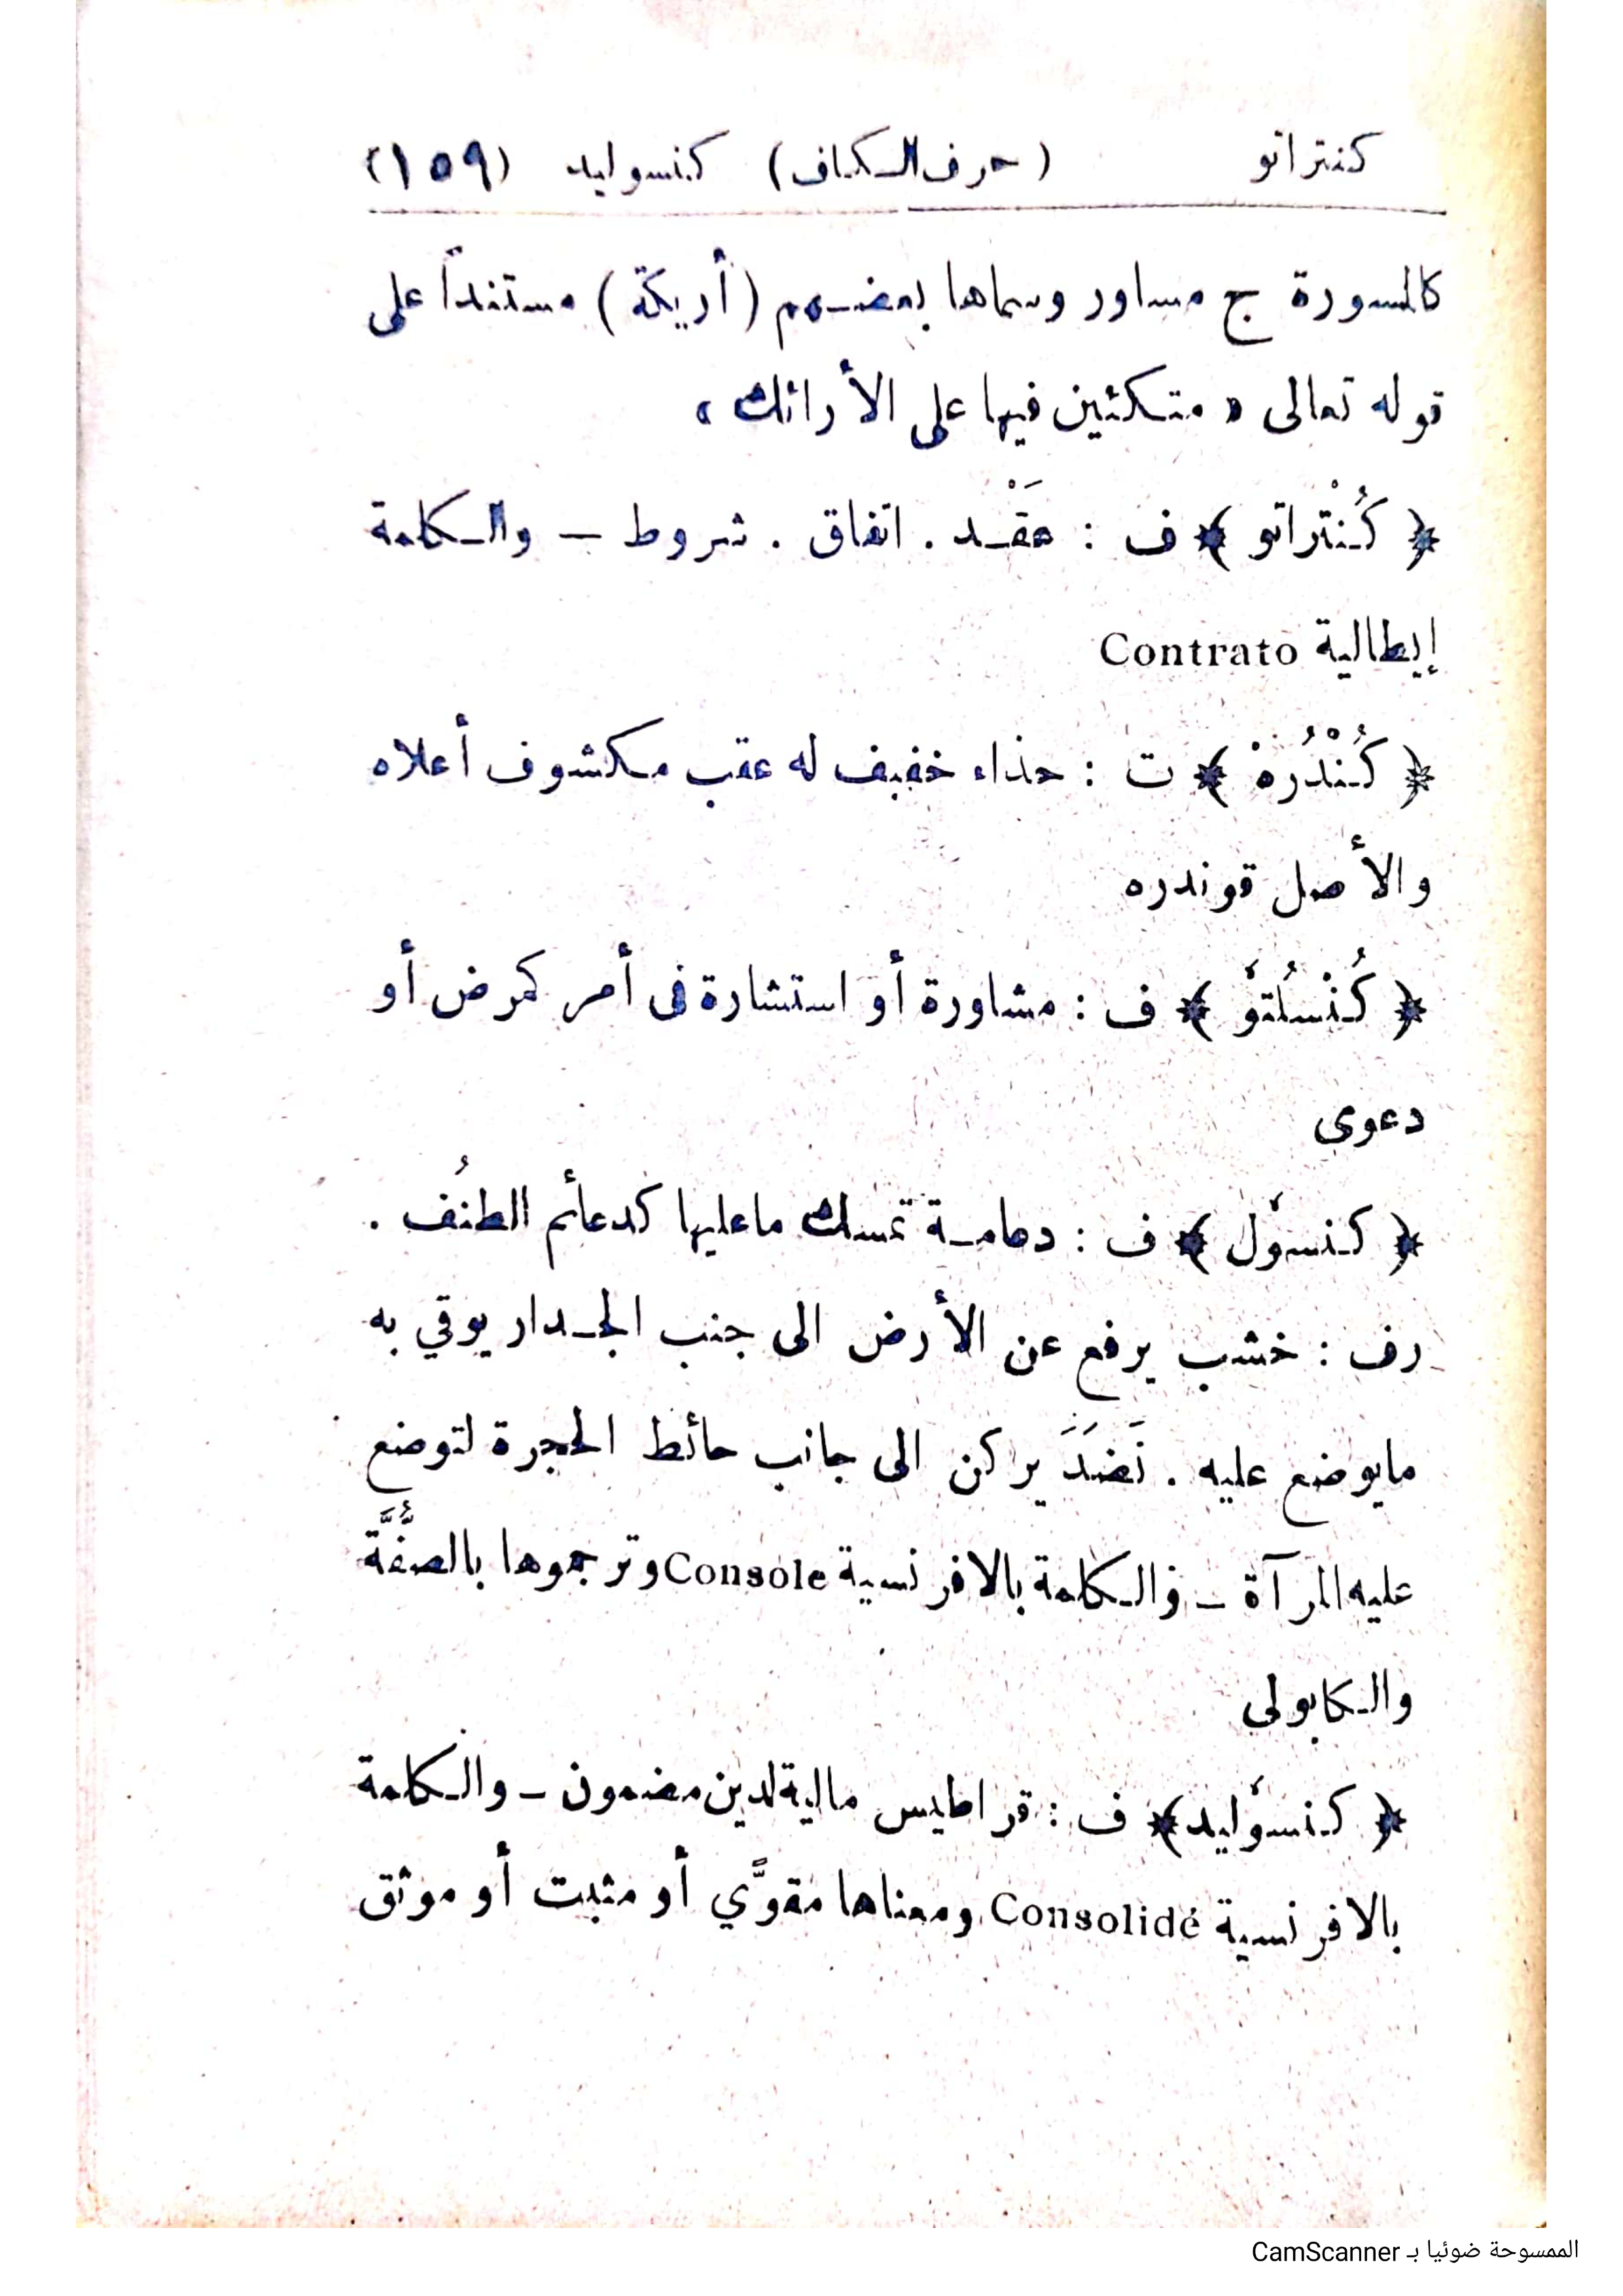 كنتراتو (حرف الكاف) كنسوليد (١٥٩)
كالمسورة ج مساور وسماها بعضهم (أريكة) مستنداً على
قوله تعالى « متكئين فيها على الأرائك »
﴿ كُنْتراتو ﴾ ف : عَقْد . اتفاق . شروط — والكلمة
إيطالية Contrato
﴿ كُنْدُرَهْ ﴾ ت : حذاء خفيف له عقب مكشوف أعلاه
والأصل قوندره
﴿ كُنْسُلْتو ﴾ ف : مشاورة أو استشارة فى أمر كمرض أو
دعوى
﴿ كنسول ﴾ ف : دعامة تمسك ماعليها كدعائم الطنُف .
رف : خشب يرفع عن الأرض الى جنب الجدار يوقي به
مايوضع عليه . نَضَدَ يركن الى جانب حائط الحجرة لتوضع
عليه المرآة – والكلمة بالافرنسية Console وترجموها بالصُّفَّة
والكابولى
﴿ كنسوليد ﴾ ف : قراطيس مالية لدين مضمون – والكلمة
بالافرنسية Consolidé ومعناها مقوَّي أو مثبت أو موثق
الممسوحة ضوئيا بـ CamScanner